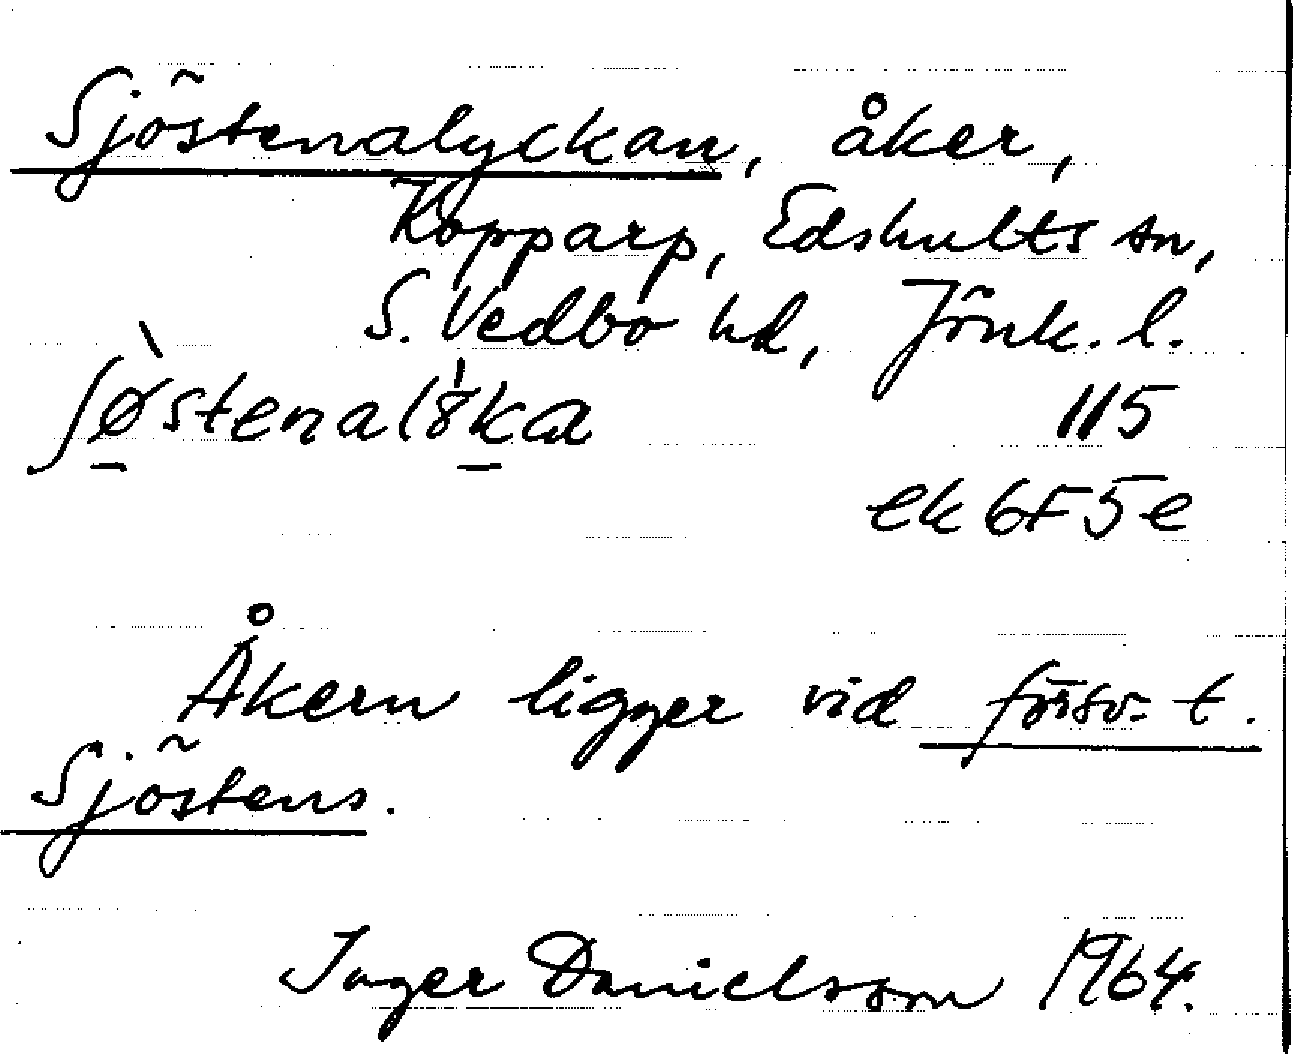 Sjöstenalyckan, åker,
Kopparp, Edshults sn,
S. Vedbo hd, Jönk. l.
ʃø̀stenalɣ̍ka 115
ek 6F5e
Åkern ligger vid försv. t.
Sjöstens.
Inger Danielsson 1964.